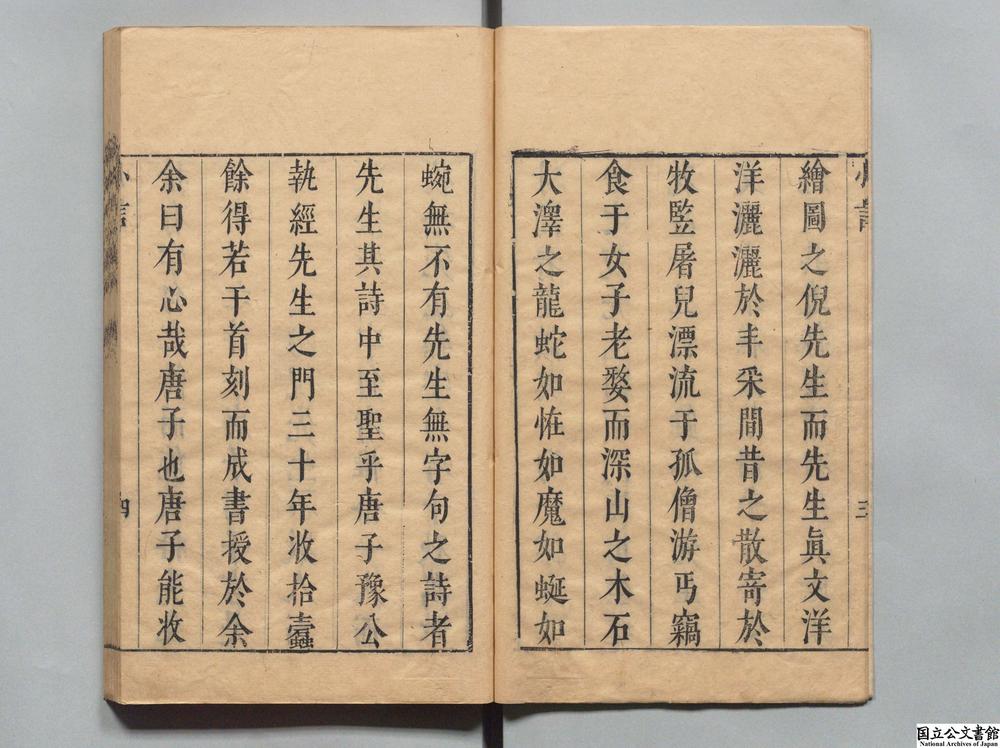 繪圖之倪先生而先生眞文洋
洋灑灑於丰采間昔之散寄於
牧監屠兒漂流于孤僧游丐竊
食于女子老婺而深山之木石
大澤之龍蛇如恠如魔如蜒如
三
蜿無不有先生無字句之詩者
先生其詩中至聖乎唐子豫公
執經先生之門三十年收拾蠹
餘得若干首刻而成書授於余
余曰有心哉唐子也唐子能收
四
国立公文書館
National Archives of Japan